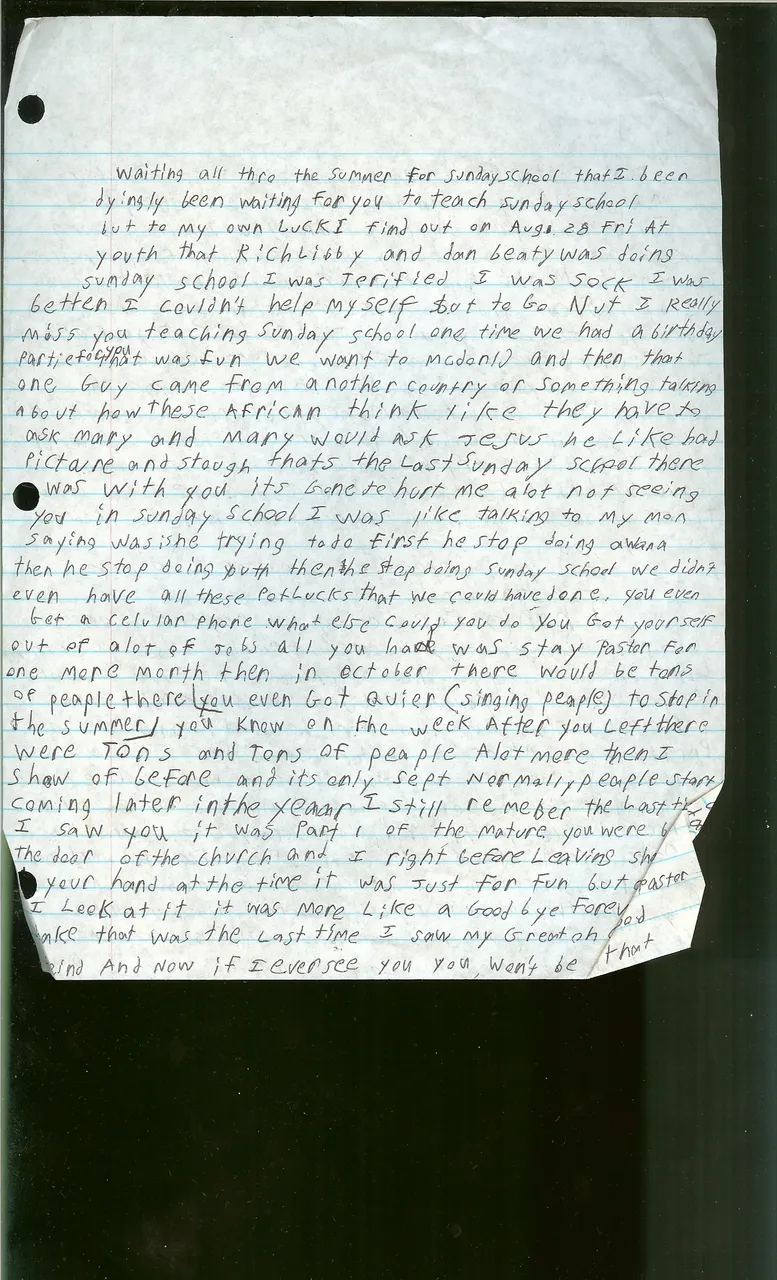 Waiting all thro the summer for sunday school that I been
dyingly been waiting for you to teach sunday school
but to my own LUCK I find out on Aug. 28 Fri At
youth that Rich Libby and dan beaty was doing
sunday school I was Terified I was SOCK I was
betten I couldn't help myself but to Go Nut I Really
miss you teaching Sunday school one time we had a birthday
partie for you that was fun we want to mcdonld and then that
one Guy came from another country or something talking
about how these African think like they have to
ask mary and mary would ask Jesus he Like had
Picture and stough thats the Last Sunday school there
was with you its Gone to hurt me alot not seeing
you in sunday school I was like talking to my mom
saying was ishe trying todo first he stop doing awana
then he stop doing youth then the stop doing Sunday school we didn't
even have all these PotLucks that we could have done. you even
Got a celular phone what else could you do you Got yourself
out of alot of Jobs all you had was stay Pastor For
one more month then in october there would be tons
of people there (you even Got Quier (singing people) to stop in
the summer) you know on the week After you Left there
were Tons and Tons of people Alot more then I
show of before and its only sept Normally people start
coming later in the yeaar I still remeber the Last
I saw you it was Part 1 of the mature you were
the door of the church and I right before Leaving
your hand at the time it was Just for fun but pastor
I Look at it it was more Like a Good bye
that was the Last time I saw my Great oh
And Now if I ever see you you won't be that